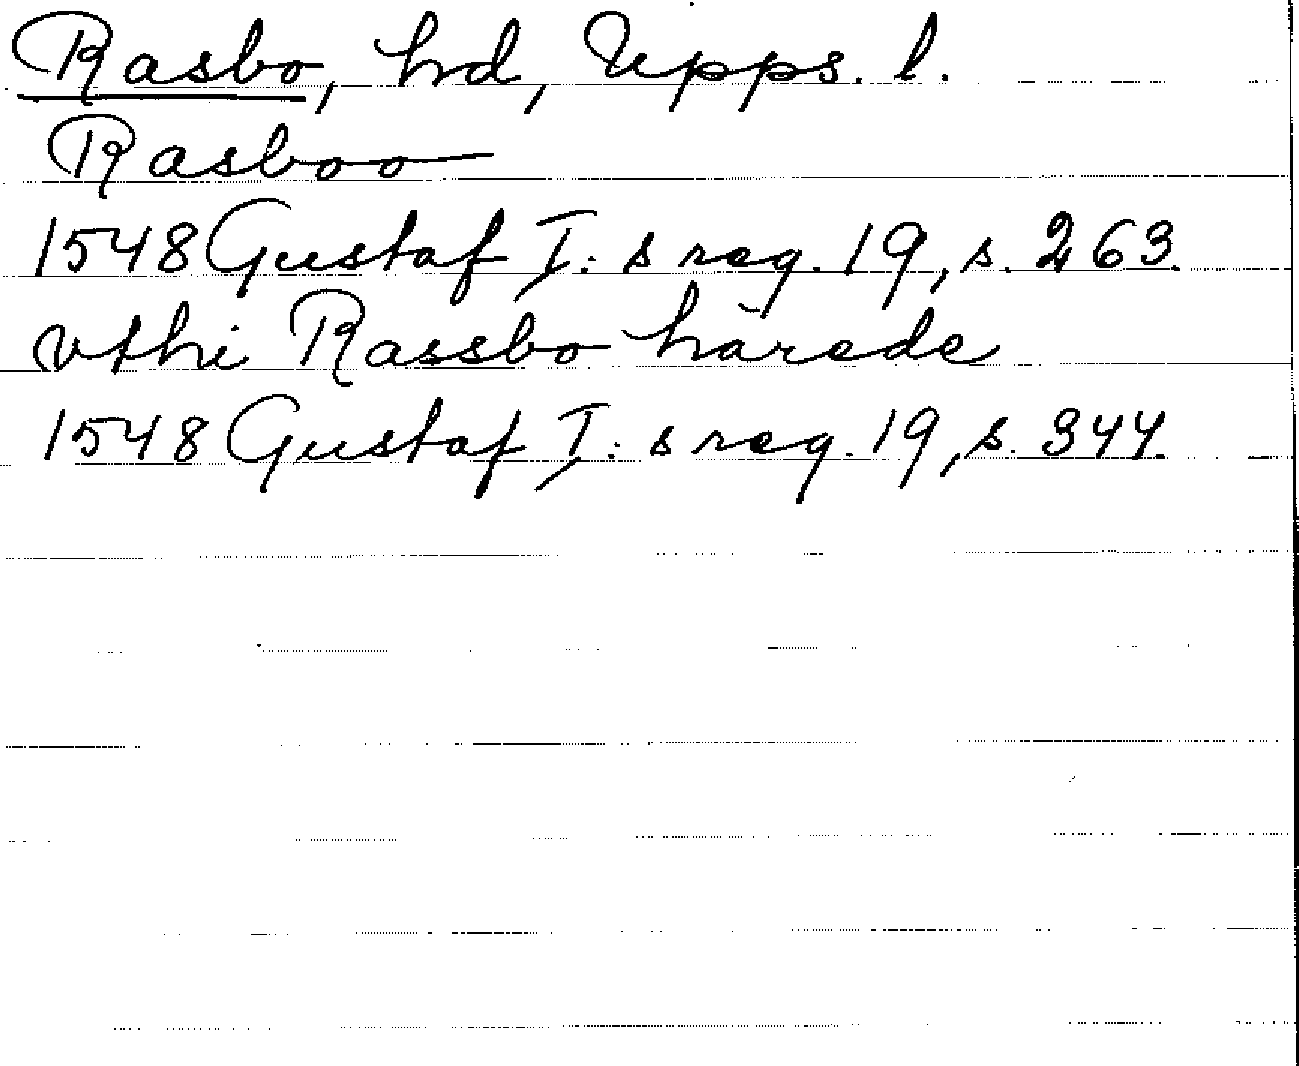 Rasbo, hd, Upps. l.
Rasboo
1548 Gustaf I: s reg. 19, s. 263.
vthi Rassbo härede
1548 Gustaf I: s reg. 19, s. 344.